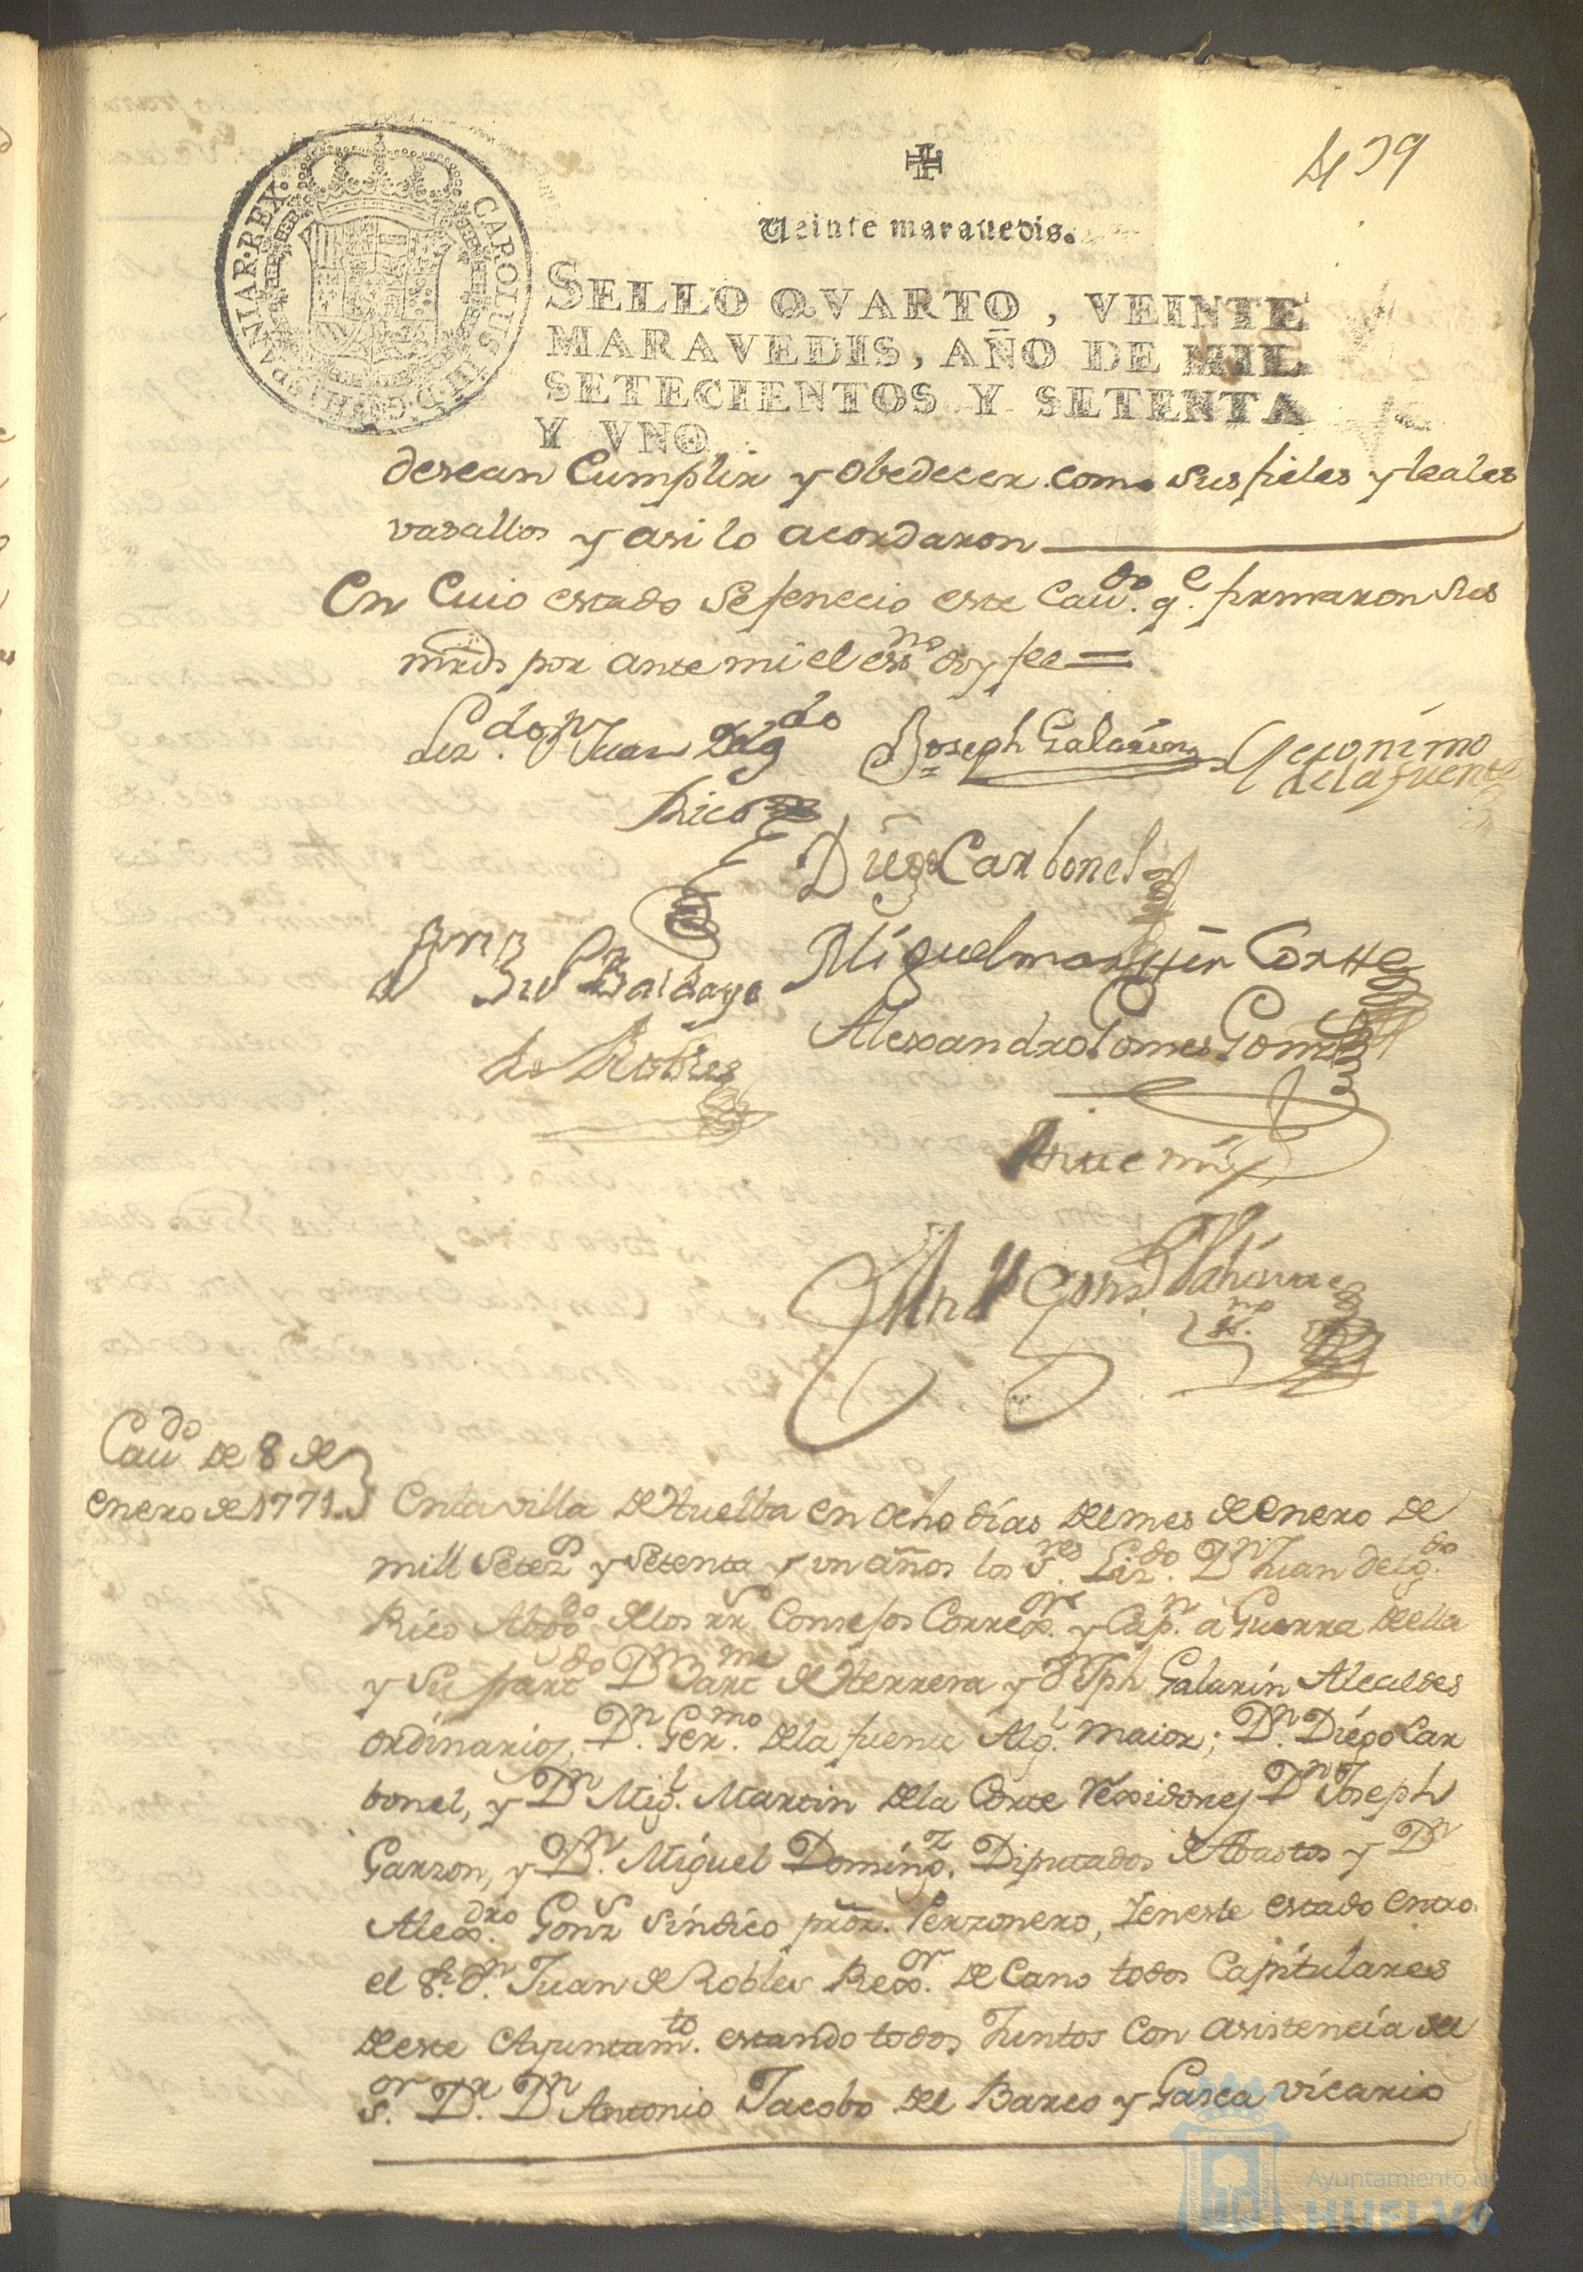 439
Veinte maravedis.
SELLO QVARTO, VEINTE
MARAVEDIS, AÑO DE MIL
SETECIENTOS Y SETENTA
Y VNO
CAROLUS III D.G. HISPANIAR. REX.
desean Cumplir y obedecer como sus fieles y leales
vasallos y asi lo acordaron
En Cuio estado se fenecio este Cauᵈᵒ. qᵉ. firmaron sus
mrds por ante mi el essⁿᵒ doy fee =
Lizᵈᵒ. Dⁿ Juan Delgᵈᵒ
Rico
Joseph Galarin
Geronimo
de la fuente
Diego Carbonel
Juⁿ Baldayo
de Robles
Miguel martin Cortte
Alexandro Gomes
Ante mi
Gonz
Cauᵈᵒ de 8 de
enero de 1771.
En la villa de Huelba en ocho días del mes de enero de
mill Setezˢ y setenta y un años los Sʳᵉˢ. Lizᵈᵒ. Dⁿ Juan Delgᵈᵒ.
Rico Abogᵈᵒ de los Rˢ Consejos Corregᵒʳ. y Capⁿ. a Guerra della
y su partᵈᵒ Dⁿ Bartᵐᵉ de Herrera y Dⁿ Jph Galarín Alcaldes
ordinarios, Dⁿ. Gerᵐᵒ. de la fuente Algˡ. maior; Dⁿ. Diego Car
bonel, y Dⁿ Migˡ. Martin de la Corte Rexidores Dⁿ Joseph
Garzon, y Dⁿ. Miguel Domingᶻ. Diputados de Abastos y Dⁿ
Alexᵈʳᵒ. Gonz síndico pror. Perzonero, Y en este estado entro
el Sʳ. Dⁿ. Juan de Robles Regᵒʳ. Decano todos Capitulares
deste Ayuntamᵗᵒ. estando todos Juntos con asistencia del
Sᵒʳ. Dʳ. Dⁿ Antonio Jacobo del Barco y Gasca vicario
Ayuntamiento de
HUELVA